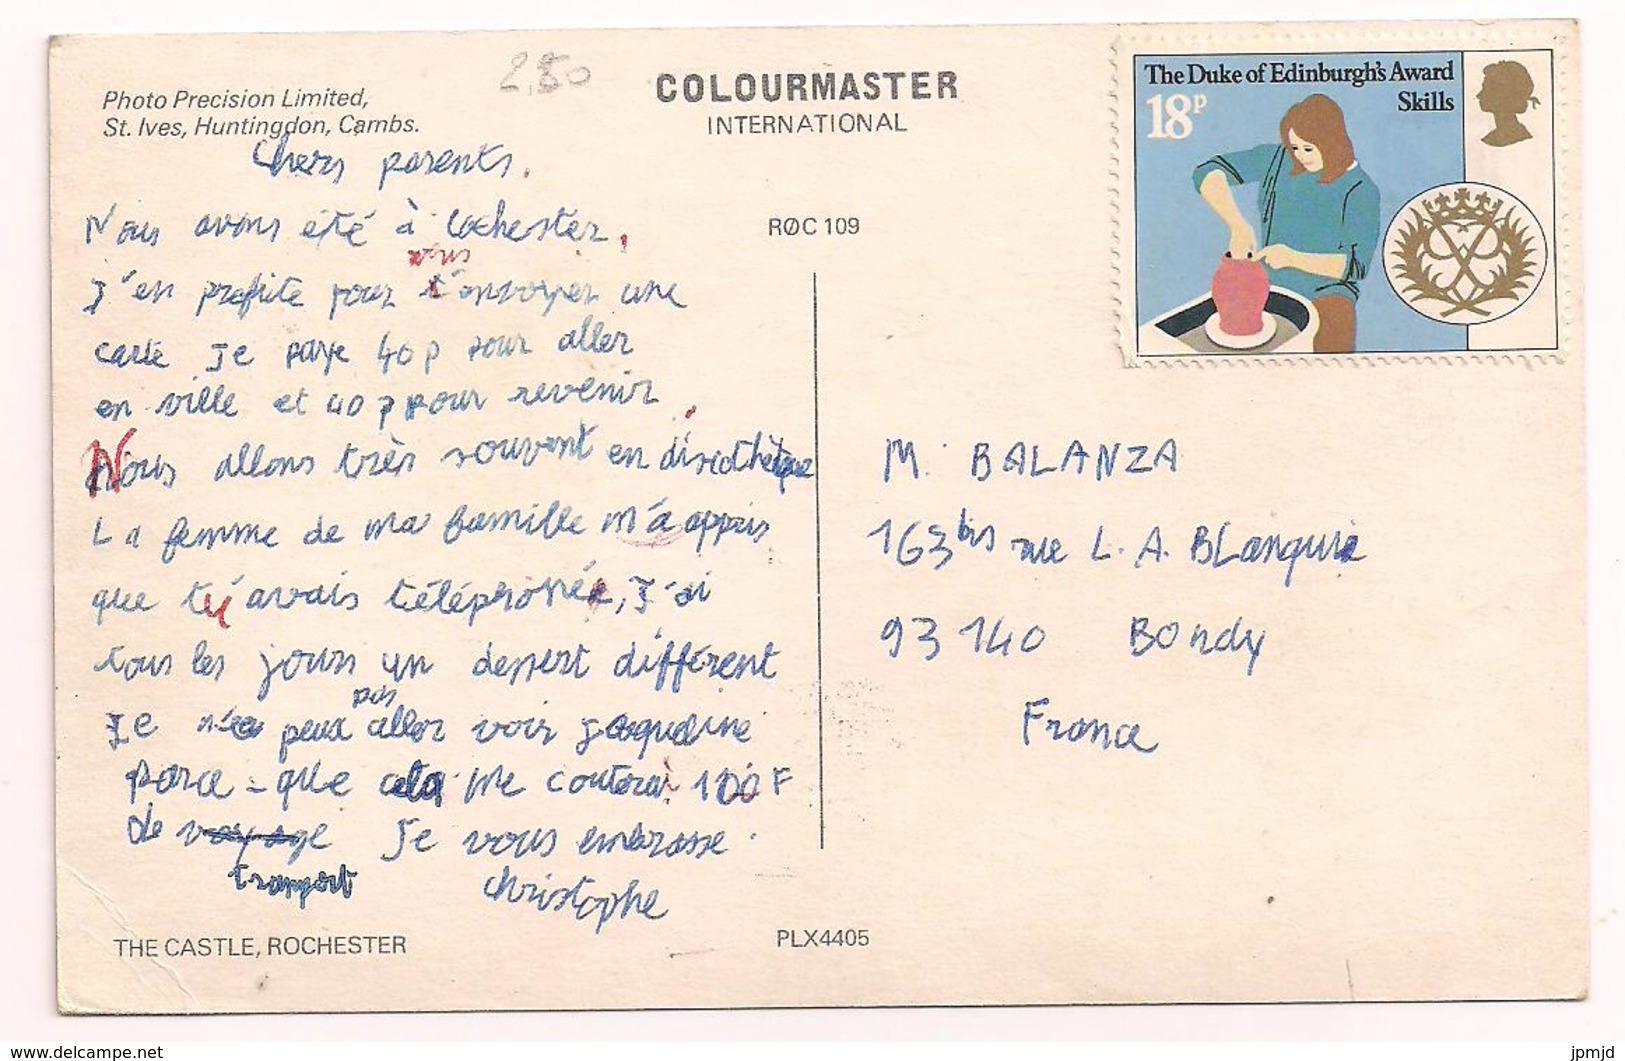 2,50
Photo Precision Limited,
St. Ives, Huntingdon, Cambs.
COLOURMASTER
INTERNATIONAL
The Duke of Edinburgh's Award
Skills
18P
RØC 109
Chers parents.
Nous avons été à Rochester,
vous
J'en profite pour t'envoyer une
carte Je paye 40 p pour aller
en ville et 40 p pour revenir.
Nous allons très souvent en discothèque
La femme de ma famille m'a appris
que tu avais téléphoné, J'ai
tous les jours un dessert différent
pas
Je ne peux aller voir Jacqueline
parce-que cela me couterai 100 F
de voyage Je vous embrasse.
transport Christophe
M. BALANZA
163 bis rue L. A. BLanqui
93140 Bondy
France
THE CASTLE, ROCHESTER
PLX4405
delcampe.net
jpmjd